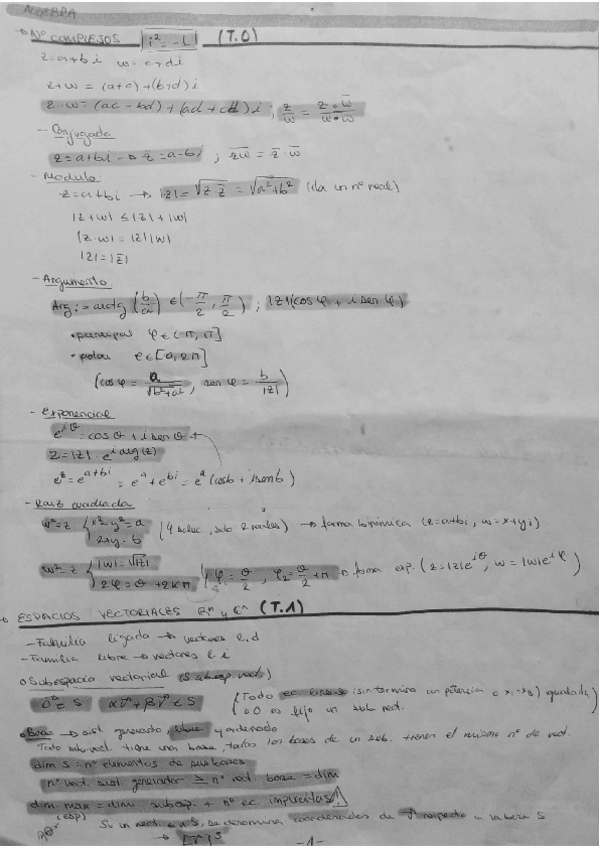 ALGEBRA
Nº COMPLEJOS i² = -1 (T.0)
z = a+bi w = c+di
z+w = (a+c)+(b+d)i
z·w = (ac-bd)+(ad+cb)i ; z/w = z·w̄/w·w̄
- Conjugada
z=a+bi → z̄=a-bi ; z̄w̄ = z̄·w̄
- Modulo
z=a+bi → |z| = √z z̄ = √a²+b² (da un nº real)
|z+w| ≤ |z|+|w|
|z·w| = |z||w|
|z| = |z̄|
- Argumento
Arg := arctg (b/a) ∈ (-π/2, π/2) ; |z|(cos φ + i sen φ)
• principal φ ∈ (-π, π]
• polar e ∈ [0, 2π]
(cos φ = a/√b²+a², sen φ = b/|z|)
- Exponencial
e^iθ = cos θ + i sen θ
z = |z|·e^i arg(z)
e^z = e^a+bi = e^a + e^bi = e^a (cos b + i sen b)
- Raiz cuadrada
w² = z { x²-y² = a (4 soluc, solo 2 reales) → forma binómica (z=a+bi, w=x+yi)
2xy = b
w² = z { |w| = √|z| φ₁ = θ/2, φ₂ = θ/2 + π → forma exp. (z=|z|e^iθ, w=|w|e^iφ)
2φ = θ + 2kπ
ESPACIOS VECTORIALES Rⁿ y Cⁿ (T.1)
- Familia ligada → vectores l.d
- Familia libre → vectores l.i
o Subespacio vectorial (S subesp. vect.)
0 ∈ S αv + βv ∈ S (Todo ec. lineal (sin termino en potencia o x₁·x₂) igualada
a 0 es fijo un sub. vect.
o Base → sist. generador, libre y ordenado
Todo sub. vect. tiene una base, todas las bases de un sub. tienen el mismo nº de vect.
dim S = nº elementos de sus bases
nº vect. sist. generador ≥ nº vect. base = dim
dim max = dim. subesp. + nº ec. implicitas
(esp)
Si un vect. ∈ S, se denomina coordenadas de v respecto a la base S
→ [v]S
-1-